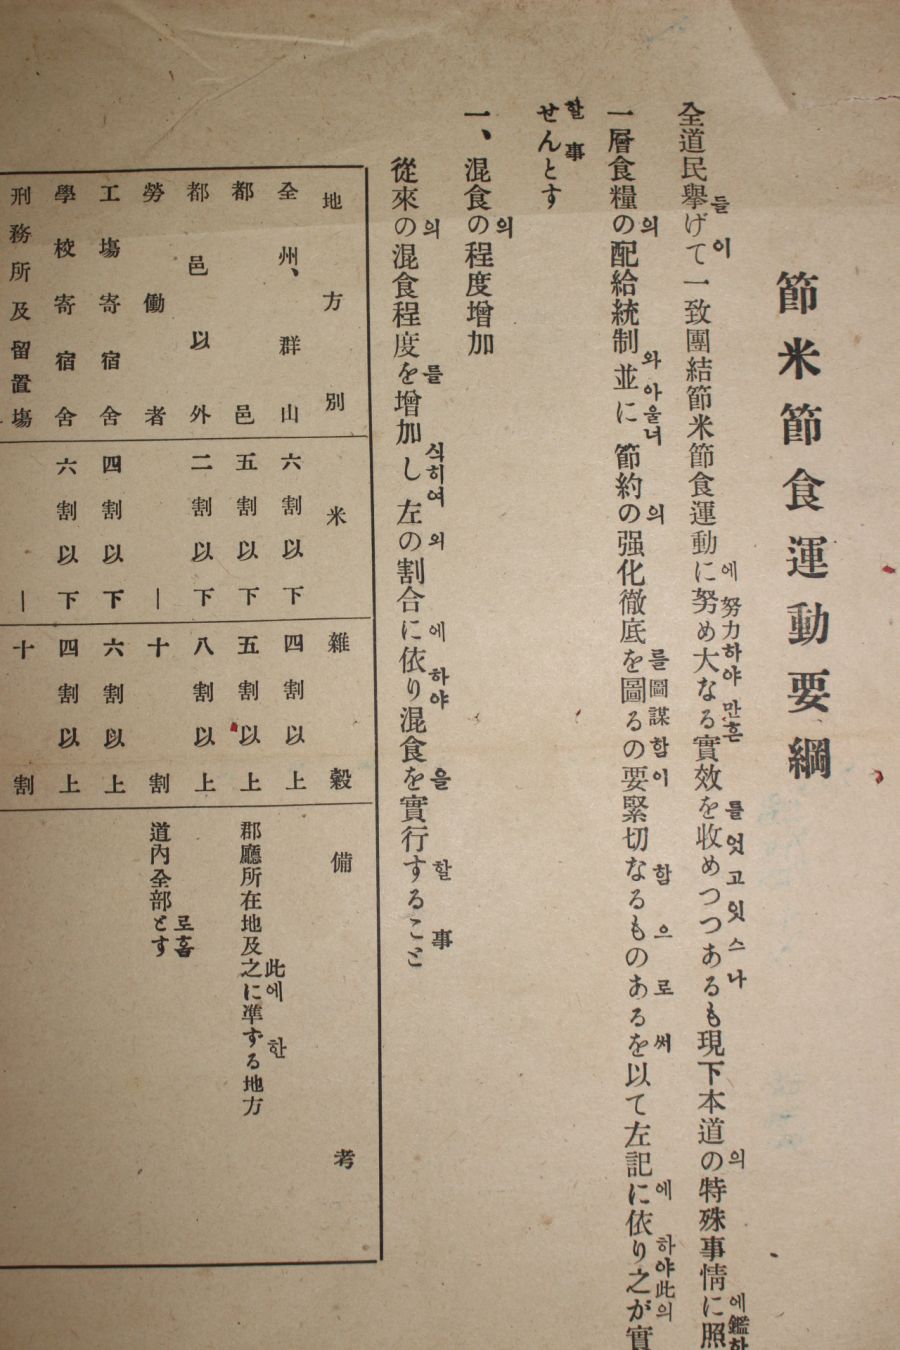 節米節食運動要綱
全道民舉げて一致團結節米節食運動に努め大なる實效を收めつつあるも現下本道の特殊事情に照
들이 에 努力하야 만흔 를엇고잇스나 의 에鑑하
一層食糧の配給統制並に節約の强化徹底を圖るの要緊切なるものあるを以て左記に依り之が實
의 와아울너 의 를圖謀함이 함으로써 에 하야此의
せんとす
할 事
一、混食の程度增加
의
從來の混食程度を增加し左の割合に依り混食を實行すること
의 를 식히여 의 에 하야 을 할 事
地方別 米 雜穀 備考
全州、群山 六割以下 四割以上
都邑 五割以下 五割以上 郡廳所在地及之に準ずる地方
此에 한
都邑以外 二割以下 八割以上
勞働者 — 十割 道內全部とす
로홈
工場寄宿舍 四割以下 六割以上
學校寄宿舍 六割以下 四割以上
刑務所及留置場 — 十割